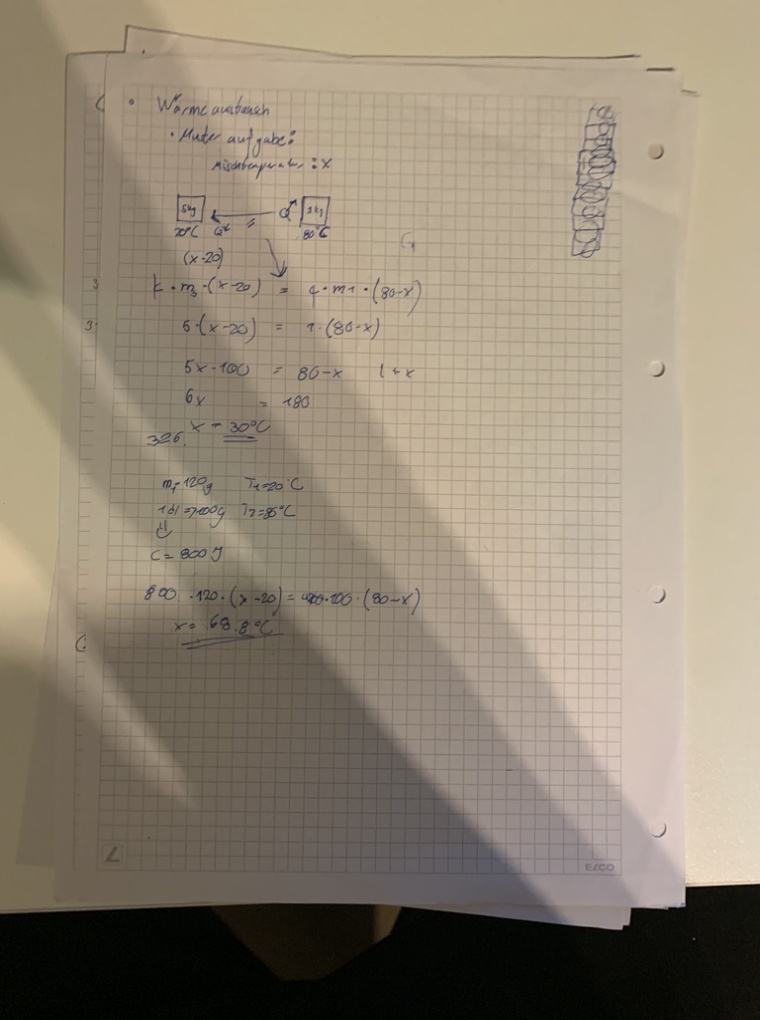 • Wärmeaustausch
• Musteraufgabe:
Mischtemperatur : x
5kg 1kg
20°C 80°C
(x-20)
(x-20) = (80-x)
5·(x-20) = 1·(80-x)
5x-100 = 80-x | +x
6x = 180
x = 30°C
326.
m₁=120g T₁=20°C
1dl=>100g T₂=85°C
C=800J
800 ·120·(x-20) = ·100·(80-x)
x= 68.8°C
ELCO